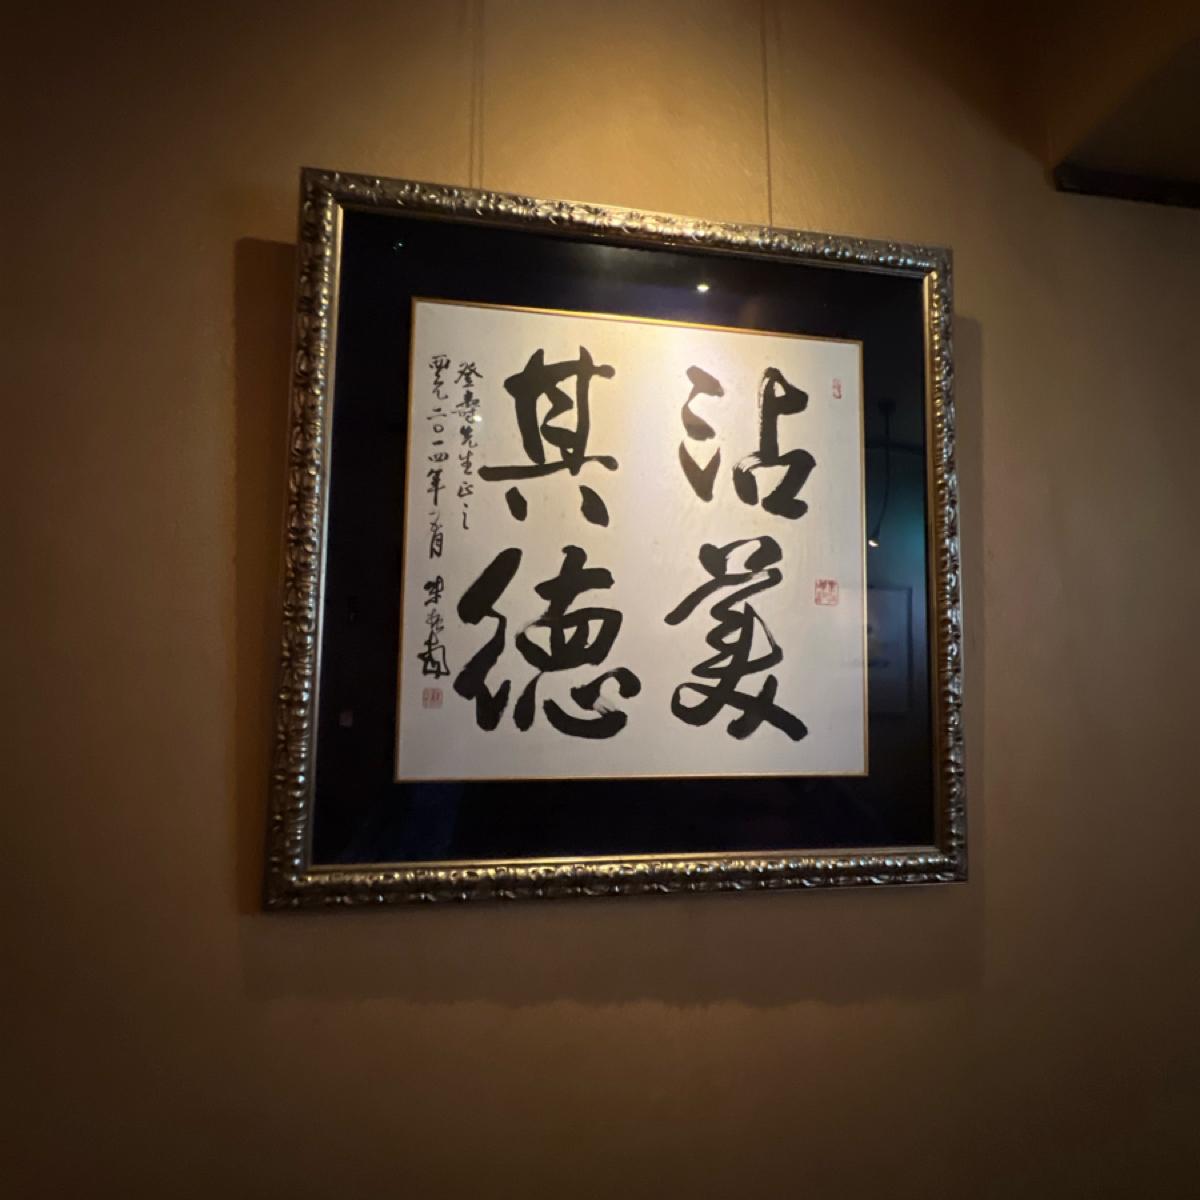 沾美
其德
登壽先生正之
西元二〇一四年